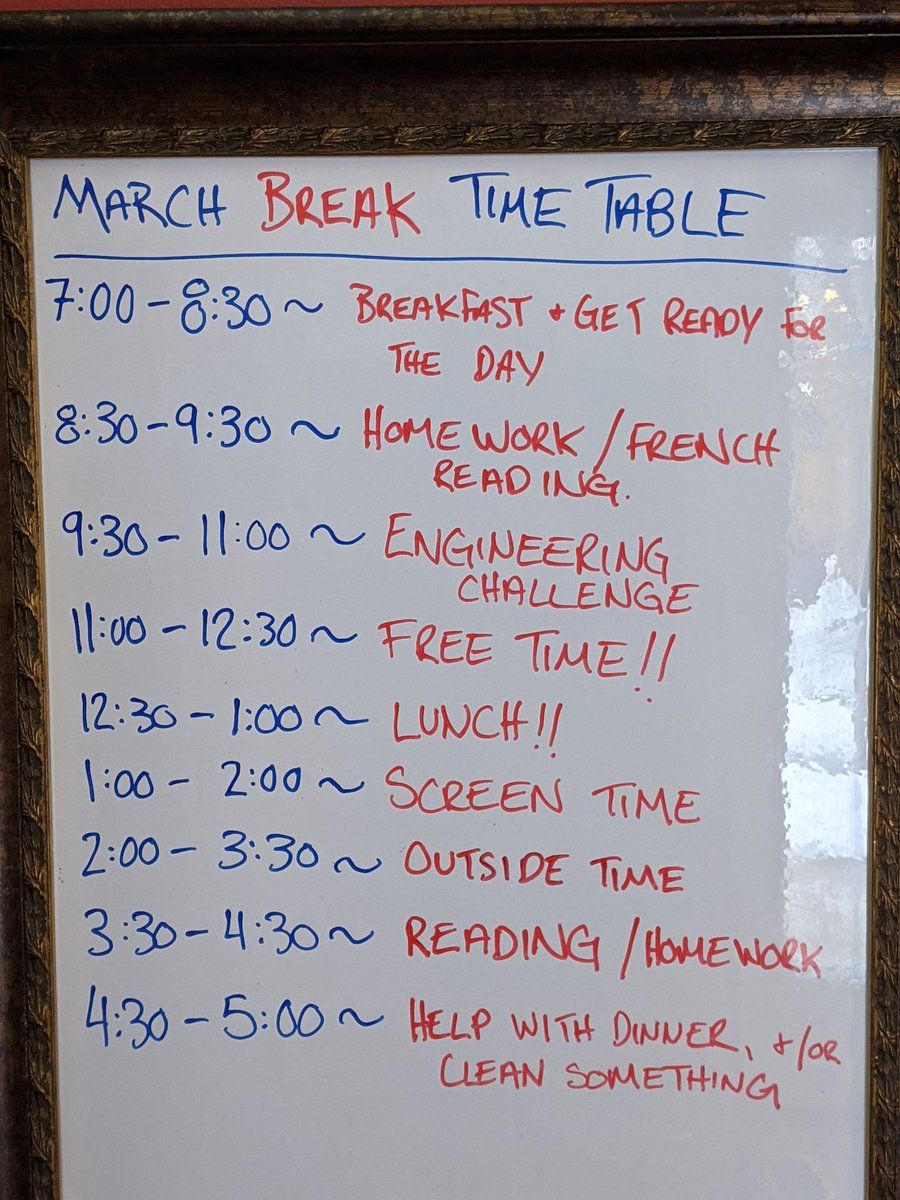 MARCH BREAK TIME TABLE
7:00 - 8:30 ~ BREAKFAST + GET READY FOR
THE DAY
8:30 - 9:30 ~ HOMEWORK / FRENCH
READING.
9:30 - 11:00 ~ ENGINEERING
CHALLENGE
11:00 - 12:30 ~ FREE TIME!!
12:30 - 1:00 ~ LUNCH!!
1:00 - 2:00 ~ SCREEN TIME
2:00 - 3:30 ~ OUTSIDE TIME
3:30 - 4:30 ~ READING / HOMEWORK
4:30 - 5:00 ~ HELP WITH DINNER, +/OR
CLEAN SOMETHING